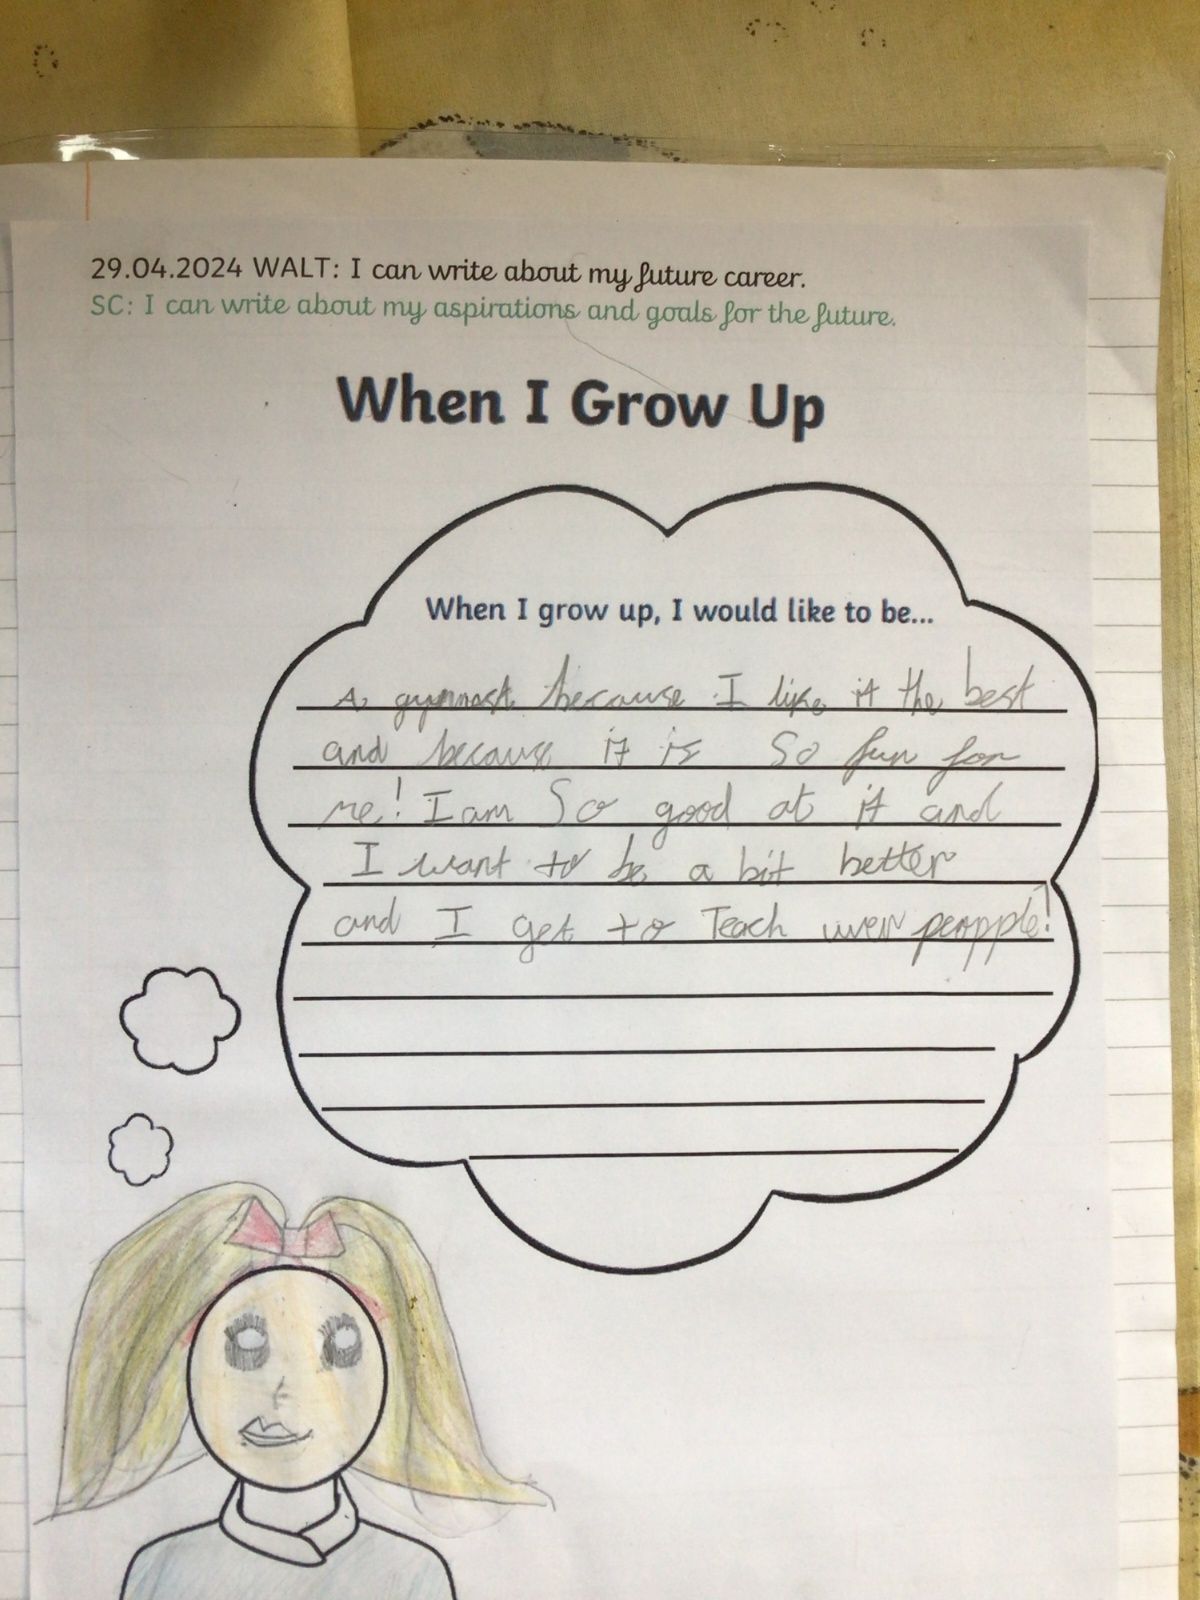 29.04.2024 WALT: I can write about my future career.
SC: I can write about my aspirations and goals for the future.
When I Grow Up
When I grow up, I would like to be...
A gymnast because I like it the best
and because it is So fun for
me! I am So good at it and
I want to be a bit better
and I get to Teach peopple!